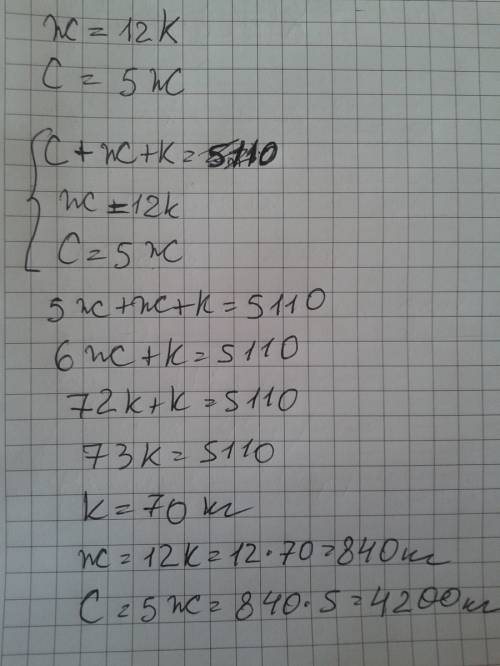 ж = 12к
С = 5ж
С + ж + к = 5110
ж = 12к
С = 5ж
5ж + ж + к = 5110
6ж + к = 5110
72к + к = 5110
73к = 5110
к = 70 кг
ж = 12к = 12·70 = 840 кг
С = 5ж = 840·5 = 4200 кг